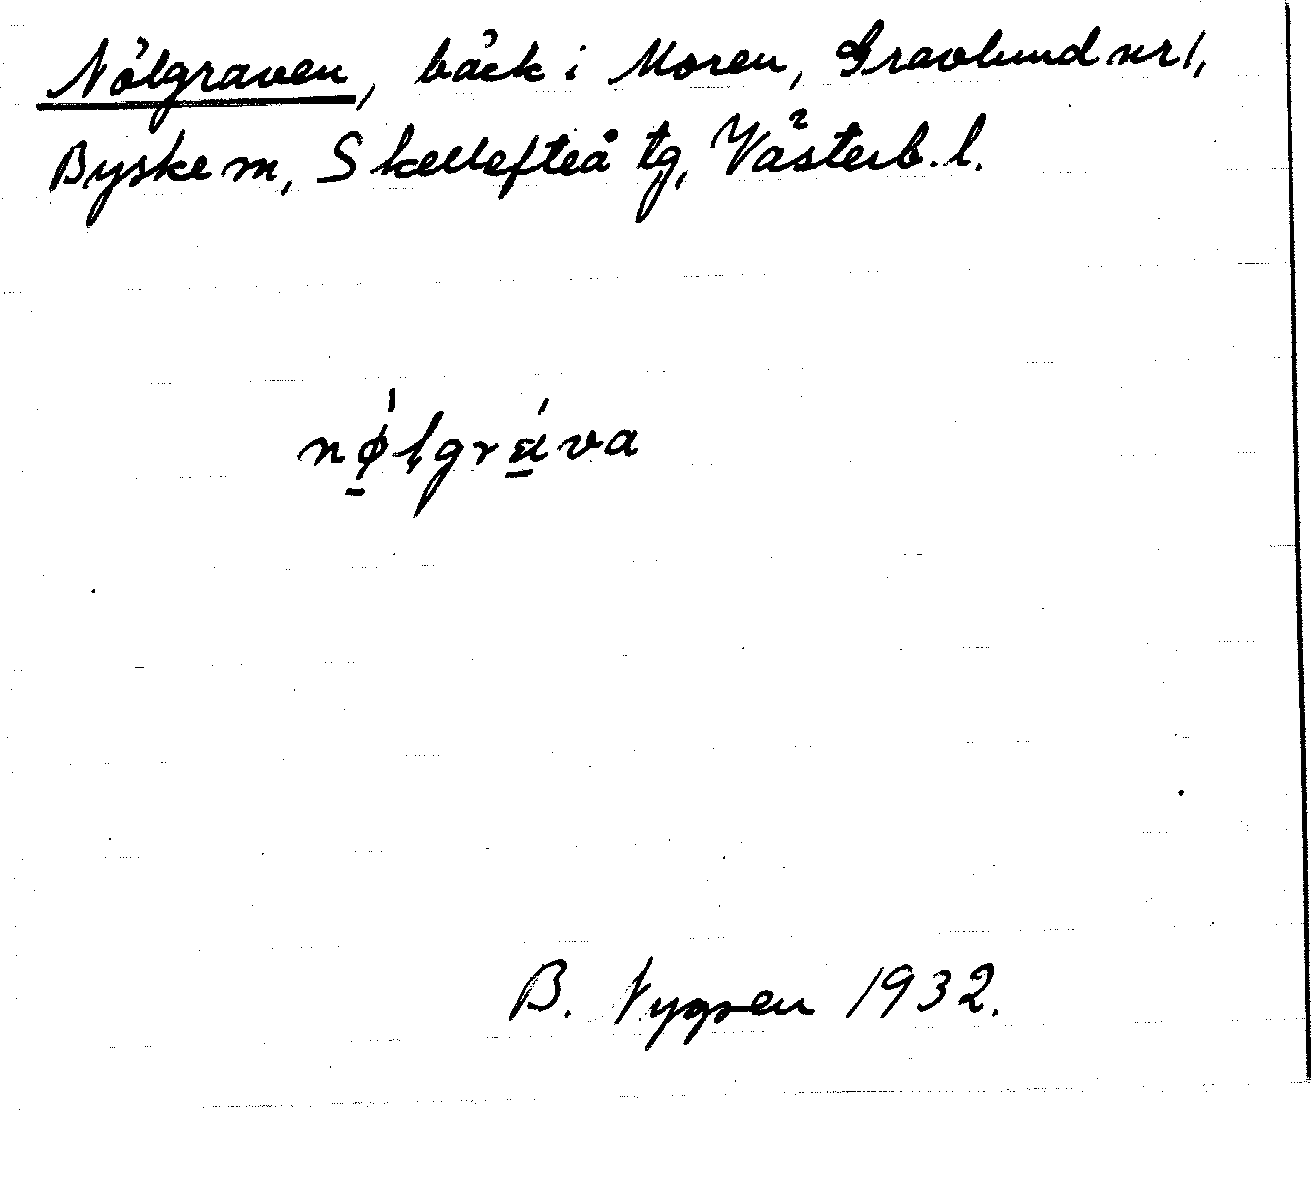 Nölgraven, bäck i Moren, Gravlund nr 1,
Byske m, Skellefteå tg, Västerb. l.
nǿ̱lgrá̱va
B. Nygren 1932.